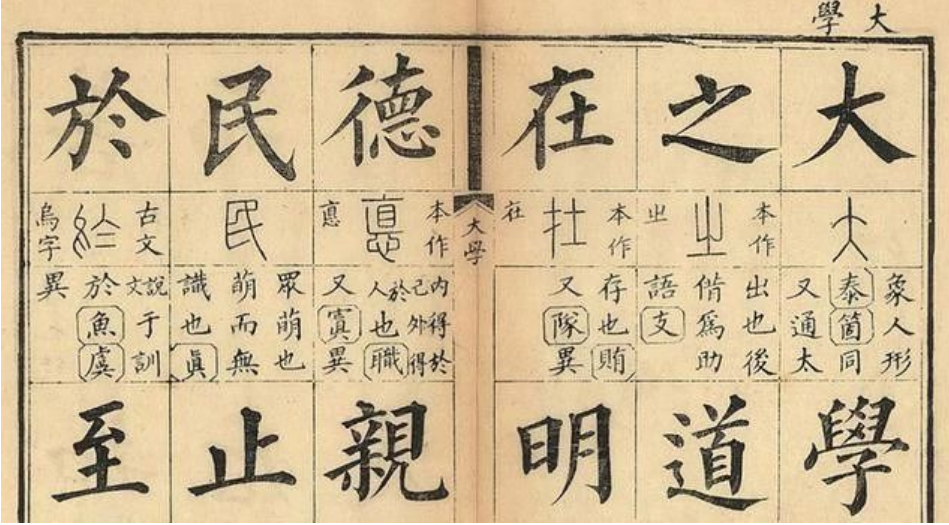 大學
大
大
象人形
泰箇同
又通太
學
之
本作
㞢
㞢
出也後
偕爲助
語支
道
在
本作
扗
在
存也賄
又隊異
明
大學
德
本作
悳
悳
內得於
己外得
於人也職
又寘異
親
民
民
眾萌也
萌而無
識也眞
止
於
古文
烏字
說文于訓
於魚虞
異
至